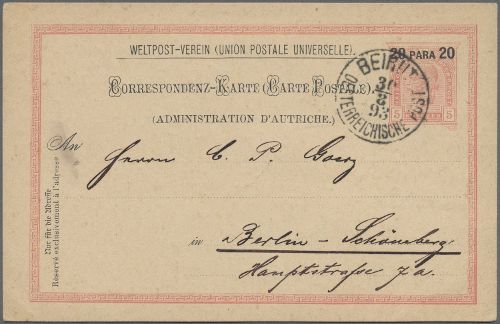 WELTPOST-VEREIN (UNION POSTALE UNIVERSELLE).
20 PARA 20
CORRESPONDENZ-KARTE (CARTE POSTALE).
(ADMINISTRATION D'AUTRICHE.)
5 5
BEIRUT
30
8
93
OESTERREICHISCHE POST
An Herrn C. P. Goerz
in Berlin - Schöneberg
Hauptstrasse 7a.
Nur für die Adresse
Réservé exclusivement à l'adresse